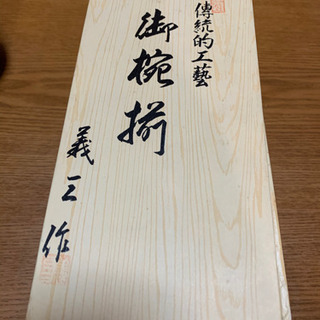 傳統的工藝
御椀揃
義三作